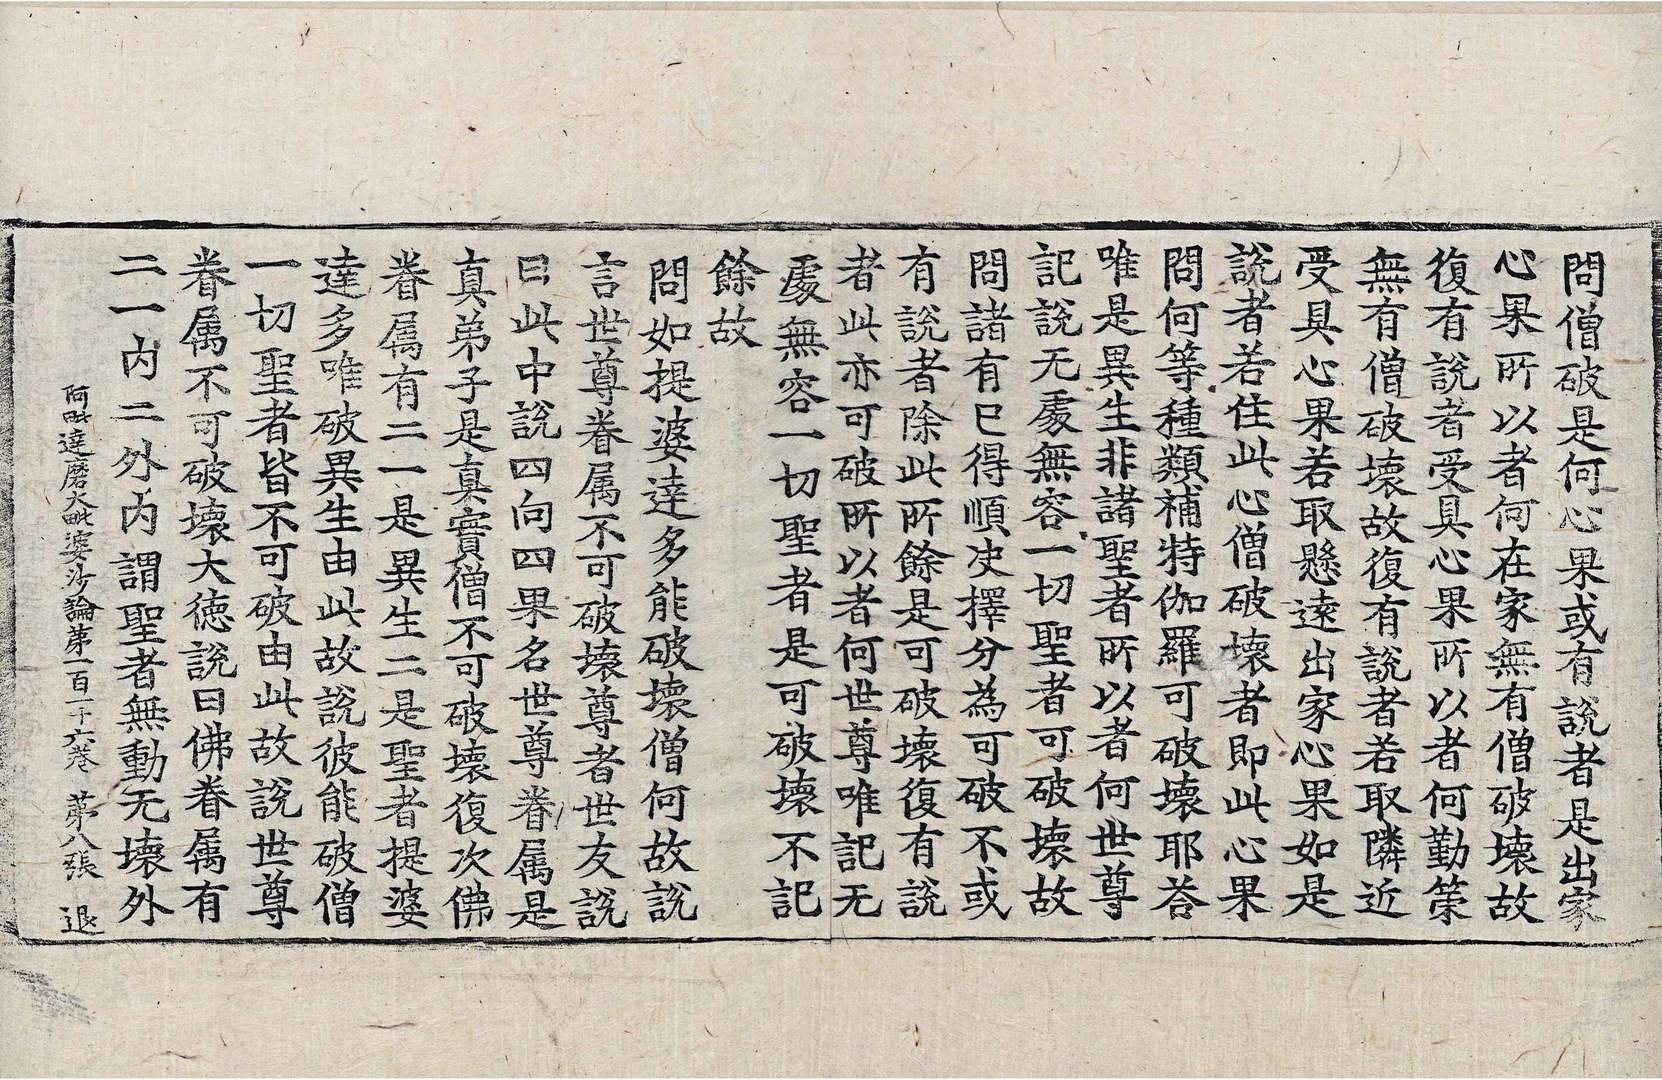 問僧破是何心果或有說者是出家
心果所以者何在家無有僧破壞故
復有說者受具心果所以者何勤策
無有僧破壞故復有說者若取隣近
受具心果若取懸遠出家心果如是
說者若住此心僧破壞者即此心果
問何等種類補特伽羅可破壞耶荅
唯是異生非諸聖者所以者何世尊
記說无處無容一切聖者可破壞故
問諸有已得順決擇分為可破不或
有說者除此所餘是可破壞復有說
者此亦可破所以者何世尊唯記无
處無容一切聖者是可破壞不記
餘故
問如提婆達多能破壞僧何故說
言世尊眷属不可破壞尊者世友說
曰此中說四向四果名世尊眷属是
真弟子是真實僧不可破壞復次佛
眷属有二一是異生二是聖者提婆
達多唯破異生由此故說彼能破僧
一切聖者皆不可破由此故說世尊
眷属不可破壞大德說曰佛眷属有
二一內二外內謂聖者無動无壞外
阿毗達磨大毗婆沙論第一百一十六卷　第八張　退